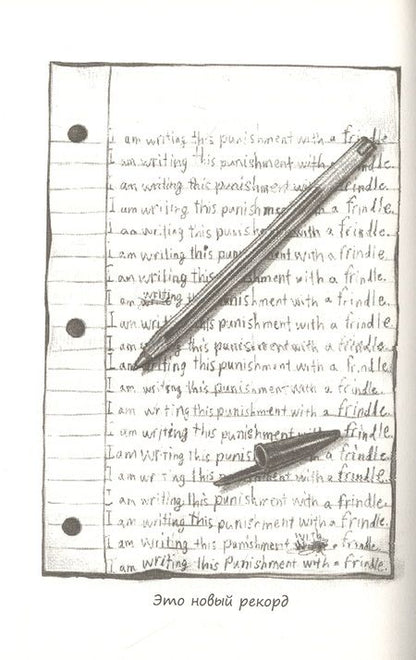 I am writing this punishment with a frindle
I am writing this punishment with a frindle.
I am writing this punishment with a frindle.
I am writing this punishment with a frindle.
I am writing this with a frindle.
I am writing this with a frindle.
I am writing this punishment with a frindle.
I am this punishment with a frindle.
I am this punishment with a frindle.
I am this punishment with a frindle.
I am writing this punishment with a frindle.
I am writing this punishment with a frindle.
I am writing this punishment with a frindle.
I am writing this punishment with a frindle.
I am writing this a frindle.
I am writing this with a frindle.
I am writing this punishment with a frindle.
I am writing this punishment with a frindle.
I am writing this punishment with a frindle.
I am writing this Punishment with a frindle.
Это новый рекорд